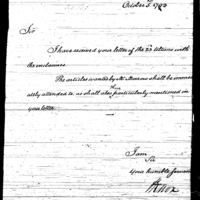 October 5. 1792
Sir
I have received your letter of the 23 ultimo with
the enclosures
The articles wanted by Mr. shall be immedi
ately attended to as shall also particularly mentioned in
your letter.
I am
Sir
Your humble servant
HKnox